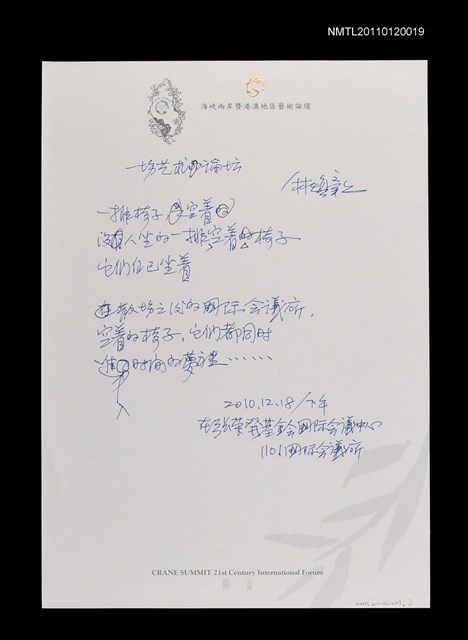 NMTL20110120019
海峽兩岸暨港澳地區藝術論壇
一場艺术論坛
林煥彰
一排椅子 空着
沒有人坐的一排空着的椅子
它們自己坐着
在散場之後的國际会議廳,
空着的椅子,它們都同时
進入时间的夢裡……
2010.12.18/下午
在張荣發基金会國际会議中心
1101國际会議廳
CRANE SUMMIT 21st Century International Forum